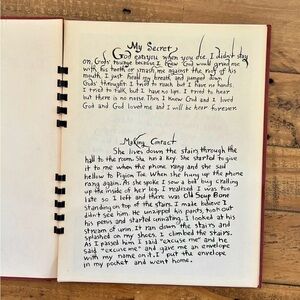 My Secret
God eats you when you die. I didn't stay
on God's tounge because I knew God would grind me
with his teeth or smash me against the roof of his
mouth, I just held my breath and jumped down
God's throught. I tried to reach but I have no hands.
I tried to talk, but I have no lips. I tried to hear
but there is no noise. Then I knew God and I loved
God and God loved me and I will be here forever.
Making Contact
She lives down the stairs through the
hall to the room. She has a key. She started to give
it to me when the phone rang and she said
hellow to Pigion Toe. When she hung up the phone
rang again. As she spoke I saw a bed bug crawling
up the inside of her leg. I realised I was too
late so I left and there was Old Soup Bone
standing on top of the stairs. I make believe I
didn't see him. He unzipped his pants, took out
his penis and started urinating. I looked at his
stream of urin. It ran down the stairs and
splashed on my shoes. I climbed the stairs.
As I passed him I said "excuse me" and he
said "excuse me" and gave me an envelope
with my name on it. I put the envelope
in my pocket and went home.